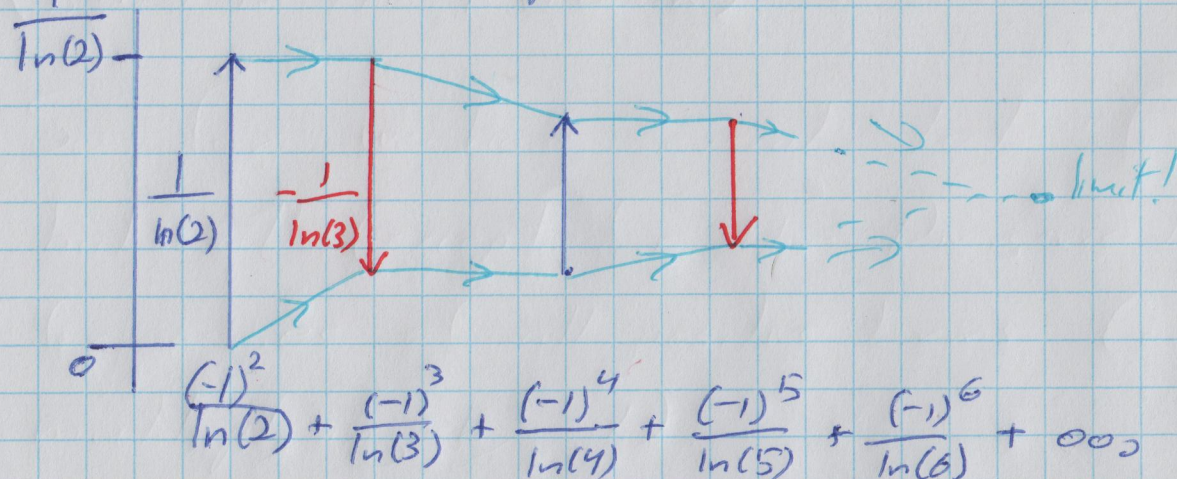 1/ln(2)
1/ln(2) -1/ln(3)
limit!
0
(-1)^2/ln(2) + (-1)^3/ln(3) + (-1)^4/ln(4) + (-1)^5/ln(5) + (-1)^6/ln(6) + ...